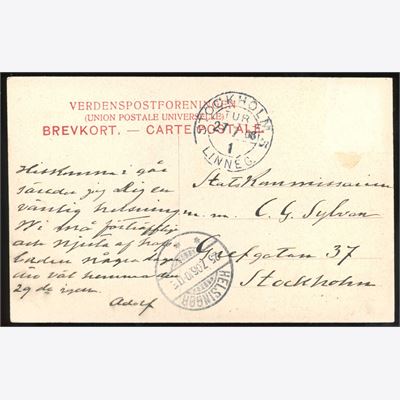 VERDENSPOSTFORENINGEN
(UNION POSTALE UNIVERSELLE)
BREVKORT. — CARTE POSTALE.
STOCKHOLM
TUR
27 7
1
LINNEG.
i går
sänder jag Dig en
vänlig helsning
Vi må förträffligt
och njuta af
baden några dagar
äro väl hemma den
29 de igen.
Adolf
Statskommissarien
m.m. C. G. Sylvan
Grefgatan 37
Stockholm
HELSINGØR